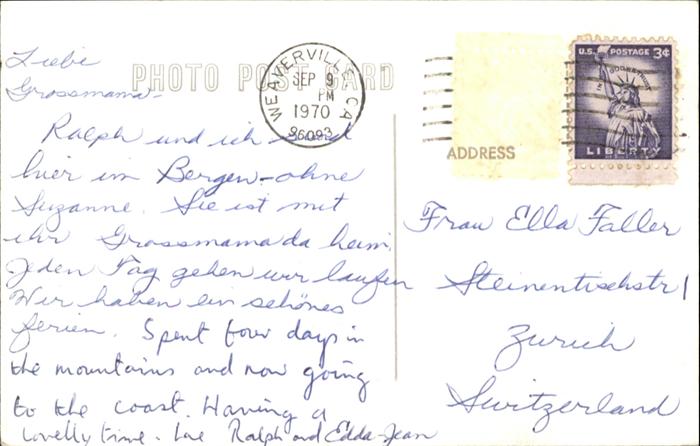 Liebe
Grossmama-
Ralph und ich sind
hier im Bergen-ohne
Suzanne. Sie ist mit
ihr Grossmama da heim.
Jeden Tag gehen wir laufen
Wir haben ein schönes
ferien. Spent four days in
the mountains and now going
to the coast. Having a
lovelly time. Love Ralph and Edda-Jean
PHOTO POST CARD
WEAVERVILLE, CA
SEP 9
PM
1970
96093
U.S. POSTAGE 3¢
IN GOD WE TRUST
LIBERTY
ADDRESS
Frau Ella Faller
Steinentischstr 1
Zurich
Switzerland